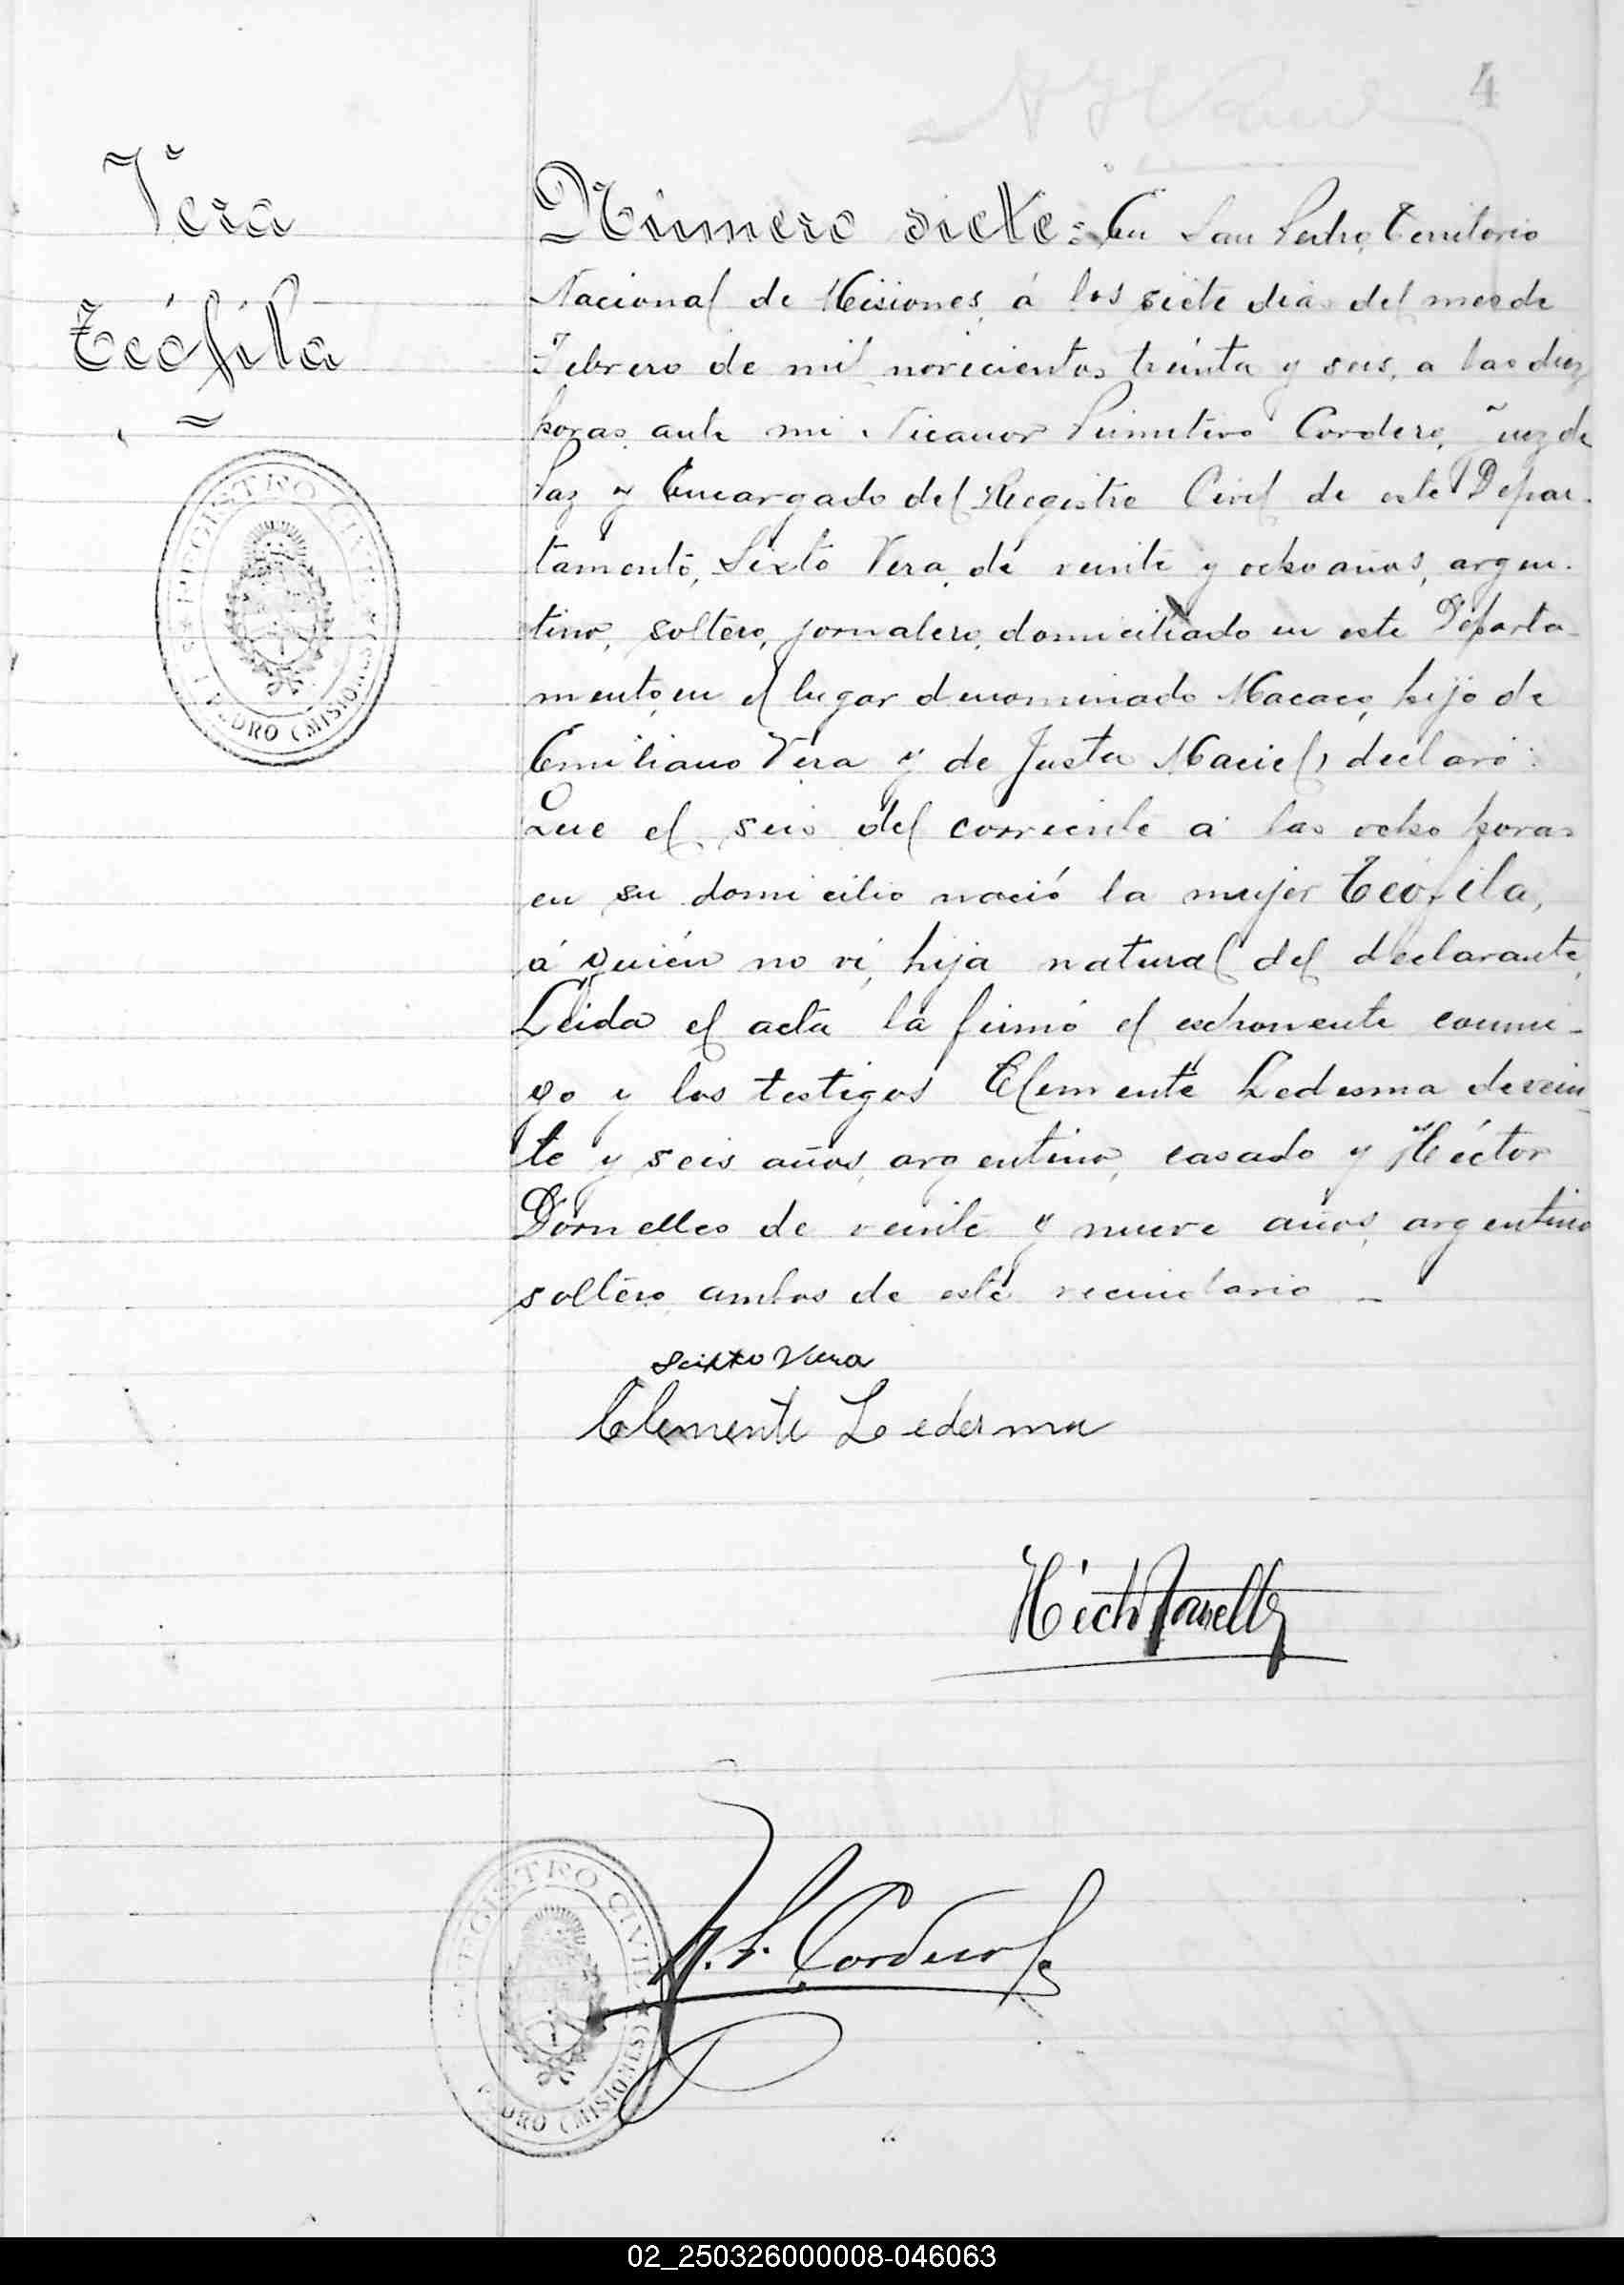 4
Vera
Teófila
Número siete: En San Pedro, Territorio
Nacional de Misiones, á los siete dias del mes de
Febrero de mil novecientos treinta y seis, a las diez
horas, ante mi Nicanor Primitivo Cordero, Juez de
Paz y Encargado del Registro Civil de este Depar-
tamento, Sixto Vera, de veinte y ocho años, argen-
tino, soltero, jornalero, domiciliado en este Departa-
mento, en el lugar denominado Macaco, hijo de
Emiliano Vera y de Justa Maciel, declaró:
Que el seis del corriente a las ocho horas
en su domicilio nació la mujer Teófila,
á quién no ví, hija natural del declarante,
Leida el acta la firmó el exponente conmi-
go y los testigos Clemente Ledesma de vein-
te y seis años, argentino, casado y Héctor
Dornelles de veinte y nueve años, argentino
soltero, ambos de este vecindario –
Seixto Vera
Clemente Ledesma
Héctor Dornelles
N. P. Cordero
REGISTRO CIVIL
PEDRO (MISIONES)
REGISTRO CIVIL
PEDRO (MISIONES)
02_250326000008-046063